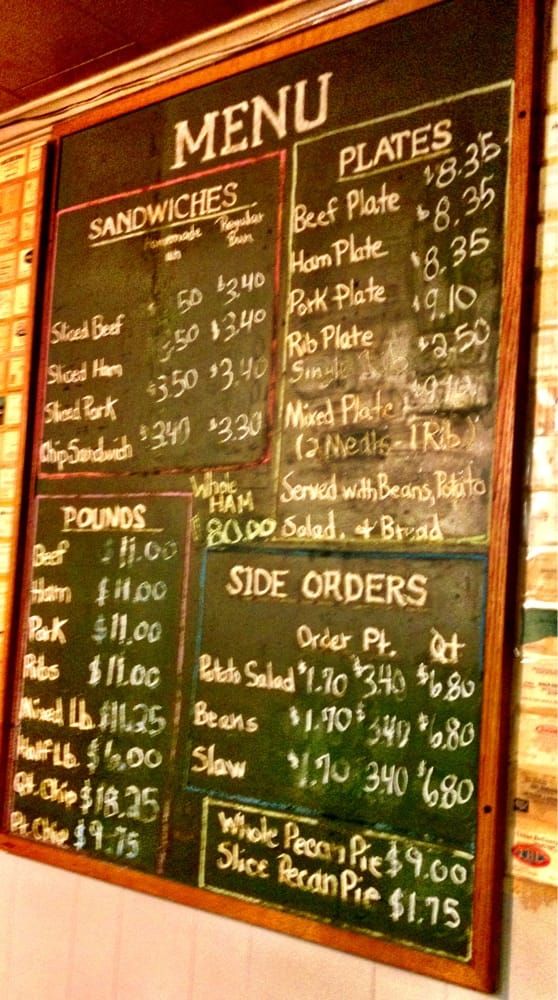 MENU
SANDWICHES
Homemade Regular
Bun
Sliced Beef 50 $3.40
Sliced Ham 3.50 $3.40
Sliced Pork $3.50 $3.40
Chip Sandwich $3.40 $3.30
PLATES
Beef Plate $8.35
Ham Plate $8.35
Pork Plate $8.35
Rib Plate $9.10
Single $2.50
Mixed Plate
(2 Meats - 1 Rib)
Served with Beans, Potato
Salad, + Bread
Whole
HAM
80.00
POUNDS
Beef $11.00
Ham $11.00
Pork $11.00
Ribs $11.00
Mixed Lb. $11.25
Half Lb. $6.00
Qt. Chip $18.25
Pt. Chip $9.75
SIDE ORDERS
Order Pt. Qt
Potato Salad $1.70 $3.40 $6.80
Beans $1.70 $3.40 $6.80
Slaw $1.70 3.40 $6.80
Whole Pecan Pie $9.00
Slice Pecan Pie $1.75